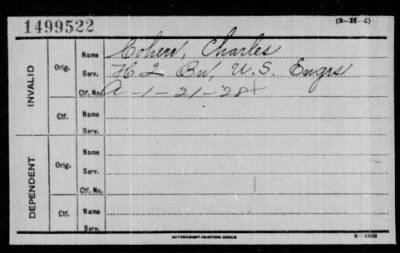 1499522
(3-H-4)
INVALID
Orig.
Name Cohen, Charles
Serv. H 2 Bn, U.S. Engrs
Ctf. No. A-1-21-28
Ctf.
Name
Serv.
DEPENDENT
Orig.
Name
Serv.
Ctf. No.
Ctf.
Name
Serv.
GOVERNMENT PRINTING OFFICE